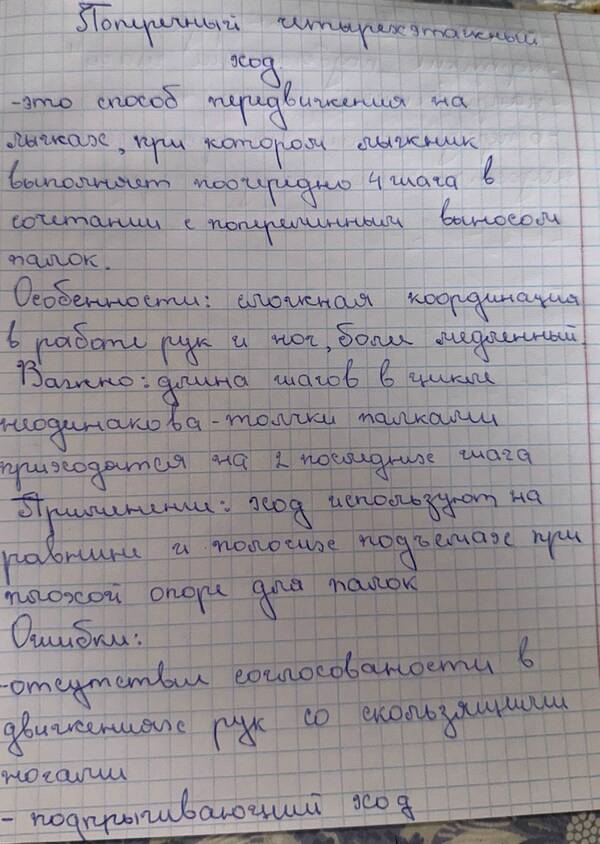 Поперечный четырехэтажный
ход.
-это способ передвижения на
лыжах, при котором лыжник
выполняет поочередно 4 шага в
сочетании с попеременным выносом
палок.
Особенности: сложная координация
в работе рук и ног, более медленный.
Важно: длина шагов в цикле
неодинакова - толчки палками
приходятся на 2 последних шага
Применение: ход используют на
равнине и пологих подъемах при
плохой опоре для палок
Ошибки:
-отсутствие согласованости в
движениях рук со скользящими
ногами
- подпрыгивающий ход